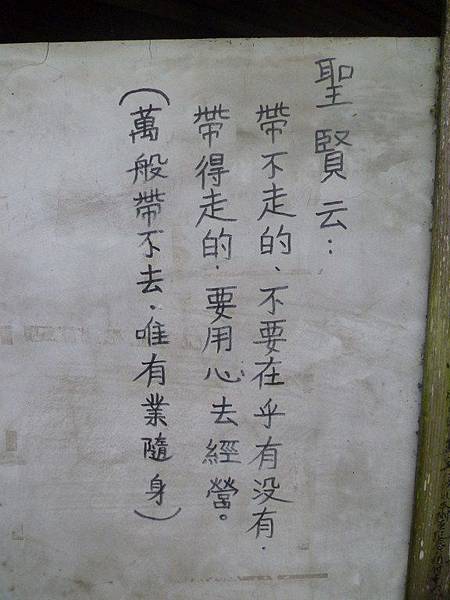 聖賢云：
帶不走的、不要在乎有没有．
帶得走的．要用心去經營。
（萬般帶不去．唯有業隨身）